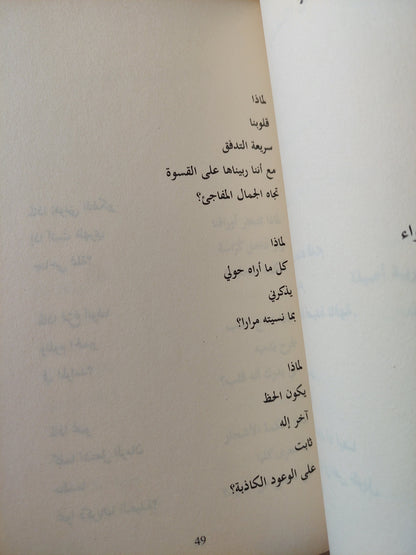 لماذا
قلوبنا
سريعة التدفق
مع أننا ربيناها على القسوة
تجاه الجمال المفاجئ؟
لماذا
كل ما أراه حولي
يذكرني
بما نسيته مرارا؟
لماذا
يكون الحظ
آخر إله
ثابت
على الوعود الكاذبة؟
49